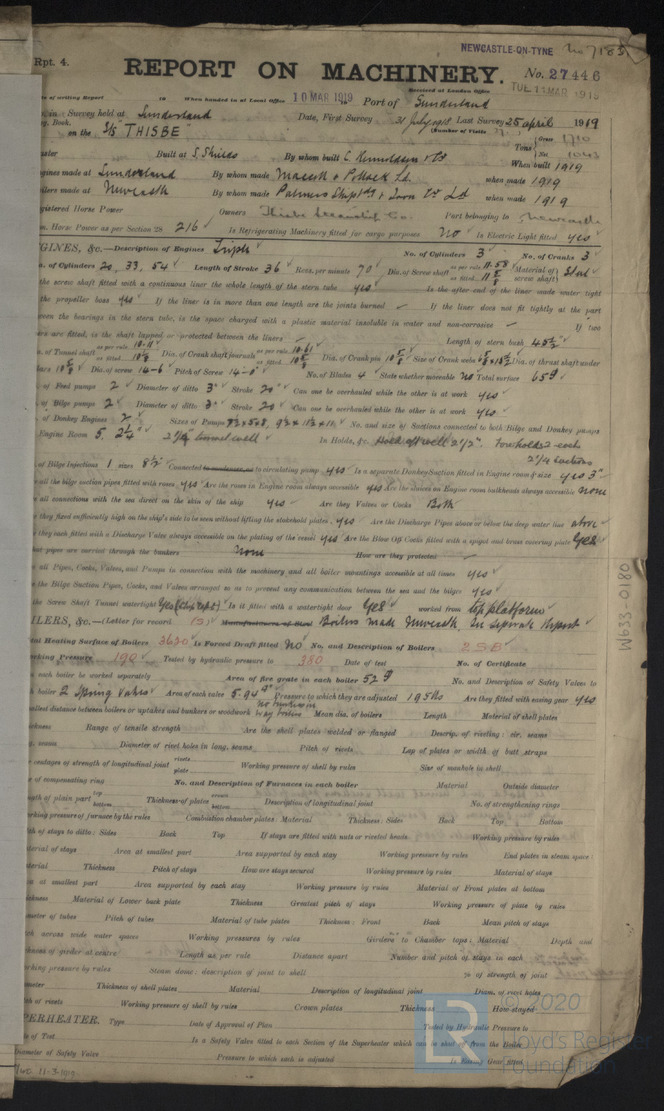 NEWCASTLE-ON-TYNE No 7185
Rpt. 4.
REPORT ON MACHINERY. No. 27446
Received at London Office TUE 11 MAR 1919
of writing Report 19 When handed in at Local Office 10 MAR 1919 Port of Sunderland
in Survey held at Sunderland Date, First Survey 31 July 1918 Last Survey 25 april 1919
Book. (Number of Visits
on the S/S THISBE Tons Gross 1710 Net 1043
Built at S. Shields By whom built C. Rennoldson & Co When built 1919
made at Sunderland By whom made MacColl & Pollock Ld. when made 1919
made at Newcastle By whom made Palmers Shipbdg & Iron Co Ld when made 1919
Registered Horse Power Owners Thisbe Steamship Co. Port belonging to Newcastle
Horse Power as per Section 28 216 Is Refrigerating Machinery fitted for cargo purposes No Is Electric Light fitted yes
GINES, &c.—Description of Engines Triple No. of Cylinders 3 No. of Cranks 3
of Cylinders 20, 33, 54 Length of Stroke 36 Revs. per minute 70 Dia. of Screw shaft as per rule 11.58 as fitted 11 5/8 Material of screw shaft Steel
the screw shaft fitted with a continuous liner the whole length of the stern tube yes Is the after end of the liner made water tight
the propeller boss yes If the liner is in more than one length are the joints burned If the liner does not fit tightly at the part
the bearings in the stern tube, is the space charged with a plastic material insoluble in water and non-corrosive If two
are fitted, is the shaft lapped or protected between the liners Length of stern bush 45½"
of Tunnel shaft as per rule 10.11 as fitted Dia. of Crank shaft journals as per rule 10.61 as fitted Dia. of Crank pin Size of Crank webs Dia. of thrust shaft under
Dia. of screw 14-6 Pitch of Screw 14-0 No. of Blades 4 State whether moveable No Total surface 65
of Feed pumps 2 Diameter of ditto 3" Stroke 20" Can one be overhauled while the other is at work yes
of Bilge pumps 2 Diameter of ditto 3" Stroke 20" Can one be overhauled while the other is at work yes
of Donkey Engines 2 Sizes of Pumps No. and size of Suctions connected to both Bilge and Donkey pumps
Engine Room 5, 2¼" 2½" tunnel well In Holds, &c. 2½". Fore holds 2 each
2¼ suctions
of Bilge Injections 1 sizes 8½" Connected to circulating pump yes Is a separate Donkey Suction fitted in Engine room & size yes 3"
all the bilge suction pipes fitted with roses yes Are the roses in Engine room always accessible yes Are the sluices on Engine room bulkheads always accessible none
all connections with the sea direct on the skin of the ship yes Are they Valves or Cocks Both
they fixed sufficiently high on the ship's side to be seen without lifting the stokehold plates yes Are the Discharge Pipes above or below the deep water line above
they each fitted with a Discharge Valve always accessible on the plating of the vessel yes Are the Blow Off Cocks fitted with a spigot and brass covering plate yes
pipes are carried through the bunkers none How are they protected
all Pipes, Cocks, Valves, and Pumps in connection with the machinery and all boiler mountings accessible at all times yes
the Bilge Suction Pipes, Cocks, and Valves arranged so as to prevent any communication between the sea and the bilges yes
the Screw Shaft Tunnel watertight yes Is it fitted with a watertight door yes worked from top platform
ILERS, &c.—(Letter for record (S) Boilers made Newcastle. See separate Report
Heating Surface of Boilers 3630 Is Forced Draft fitted No No. and Description of Boilers 2 SB
king Pressure 190 Tested by hydraulic pressure to 380 Date of test No. of Certificate
each boiler be worked separately Area of fire grate in each boiler 52 No. and Description of Safety Valves to
boiler 2 Spring Valves Area of each valve 5.94 Pressure to which they are adjusted 195 lbs Are they fitted with easing gear yes
allest distance between boilers or uptakes and bunkers or woodwork Mean dia. of boilers Length Material of shell plates
Range of tensile strength Are the shell plates welded or flanged Descrip. of riveting: cir. seams
seams Diameter of rivet holes in long. seams Pitch of rivets Lap of plates or width of butt straps
centages of strength of longitudinal joint rivets plate Working pressure of shell by rules Size of manhole in shell
of compensating ring No. and Description of Furnaces in each boiler Material Outside diameter
of plain part top bottom Thickness of plates crown bottom Description of longitudinal joint No. of strengthening rings
orking pressure of furnace by the rules Combustion chamber plates: Material Thickness: Sides Back Top Bottom
of stays to ditto: Sides Back Top If stays are fitted with nuts or riveted heads Working pressure by rules
aterial of stays Area at smallest part Area supported by each stay Working pressure by rules End plates in steam space:
Thickness Pitch of stays How are stays secured Working pressure by rules Material of stays
at smallest part Area supported by each stay Working pressure by rules Material of Front plates at bottom
ickness Material of Lower back plate Thickness Greatest pitch of stays Working pressure of plate by rules
ameter of tubes Pitch of tubes Material of tube plates Thickness: Front Back Mean pitch of stays
across wide water spaces Working pressures by rules Girders to Chamber tops: Material Depth and
ickness of girder at centre Length as per rule Distance apart Number and pitch of stays in each
rking pressure by rules Steam dome: description of joint to shell % of strength of joint
meter Thickness of shell plates Material Description of longitudinal joint Diam. of rivet holes
of rivets Working pressure of shell by rules Crown plates Thickness How stayed
PERHEATER. Type Date of Approval of Plan Tested by Hydraulic Pressure to
of Test Is a Safety Valve fitted to each Section of the Superheater which can be shut off from the Boiler
Diameter of Safety Valve Pressure to which each is adjusted Is Easing Gear fitted
11-3-1919
W633-0180
LR
© 2020
Lloyd's Register
Foundation